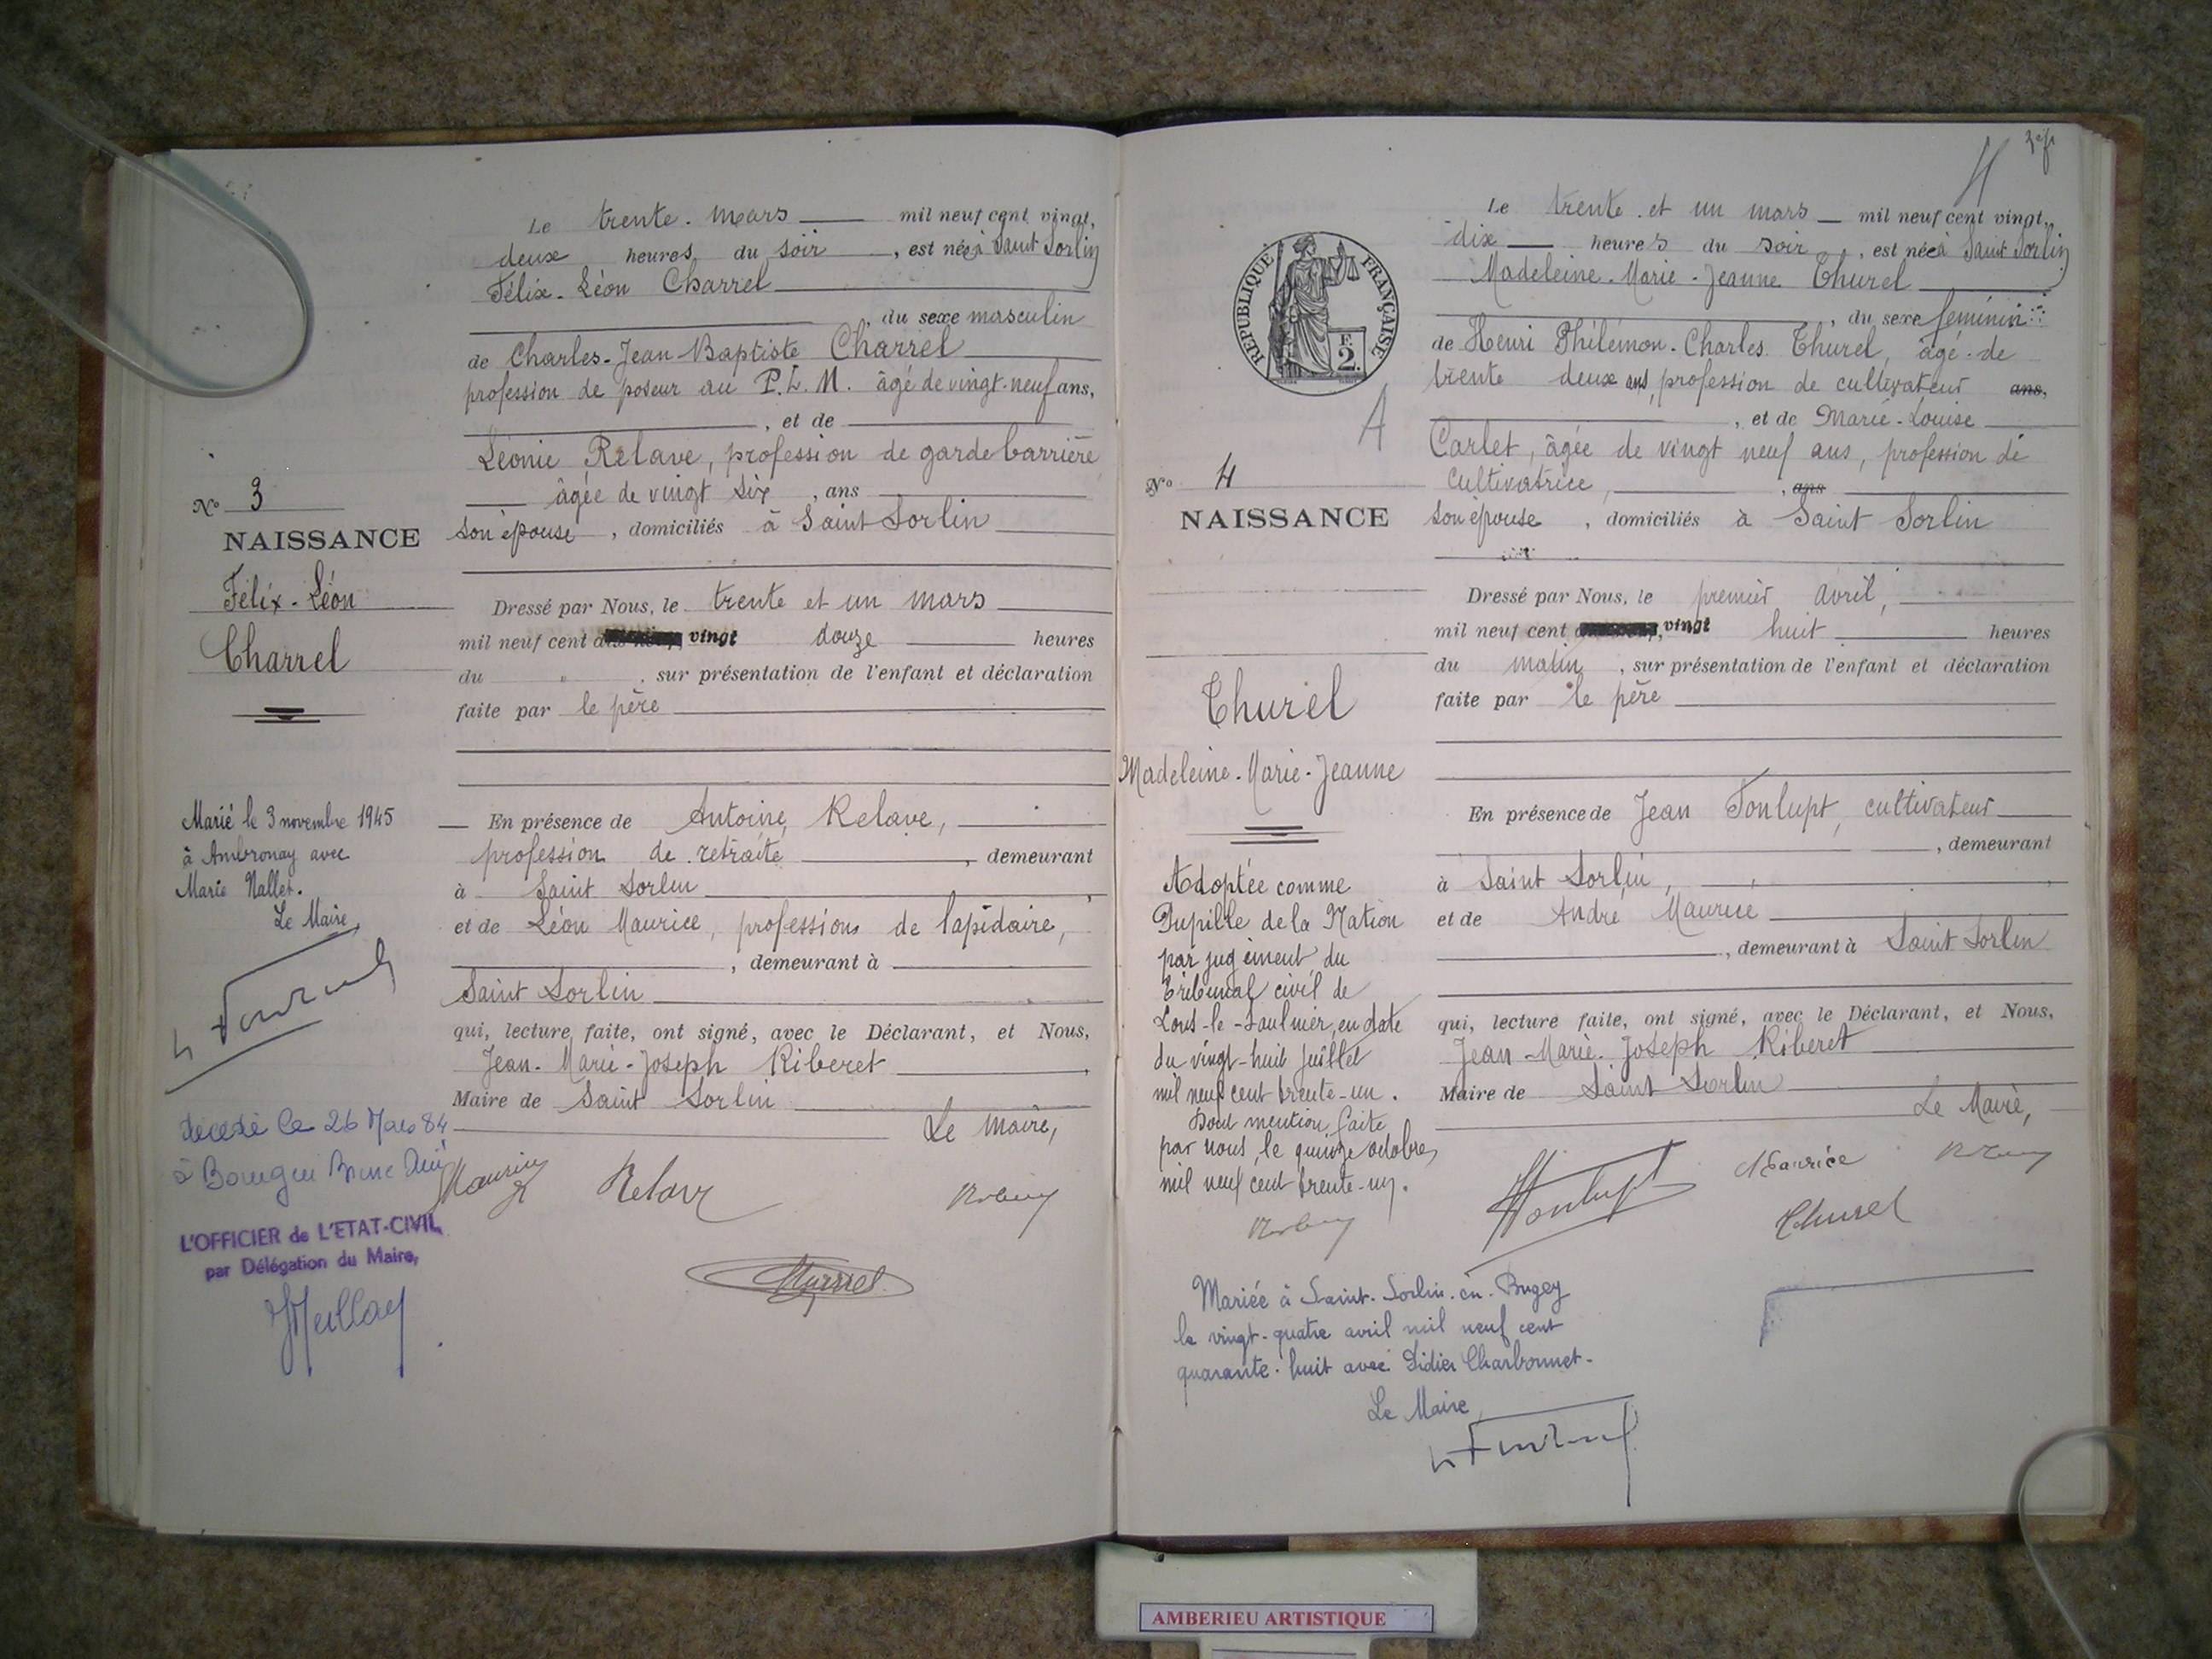 Le trente. mars mil neuf cent vingt,
deux heures du soir, est né à Saint Sorlin
Félix-Léon Charrel
, du sexe masculin
de Charles-Jean-Baptiste Charrel
profession de poseur au P.L.M. âgé de vingt-neuf ans,
, et de
Léonie Relave, profession de garde barrière
âgée de vingt six, ans
son épouse, domiciliés à Saint Sorlin
Dressé par Nous, le trente et un mars
mil neuf cent vingt douze heures
du " , sur présentation de l'enfant et déclaration
faite par le père
En présence de Antoine Relave,
profession de retraité, demeurant
à Saint Sorlin
et de Léon Maurice, profession de lapidaire,
, demeurant à
Saint Sorlin
qui, lecture faite, ont signé, avec le Déclarant, et Nous,
Jean-Marie-Joseph Riberet
Maire de Saint Sorlin
Le Maire,
Maurice Relave
Charrel
No 3
NAISSANCE
Félix-Léon
Charrel
Marié le 3 novembre 1945
à Ambronay avec
Marie Nallet.
Le Maire,
décédé le 26 Mars 84
à Bourg en Bresse Ain
L'OFFICIER de L'ETAT-CIVIL
par Délégation du Maire,
4
Le trente et un mars mil neuf cent vingt,
dix heures du soir, est née à Saint Sorlin
Madeleine-Marie-Jeanne Thurel
, du sexe féminin
de Henri Philémon-Charles Thurel, âgé de
trente deux ans, profession de cultivateur ans,
, et de Marie-Louise
Carlet, âgée de vingt neuf ans, profession de
cultivatrice, , ans
son épouse, domiciliés à Saint Sorlin
Dressé par Nous, le premier avril,
mil neuf cent vingt huit heures
du matin, sur présentation de l'enfant et déclaration
faite par le père
En présence de Jean Tonlupt, cultivateur
, demeurant
à Saint Sorlin,
et de André Maurice
, demeurant à Saint Sorlin
qui, lecture faite, ont signé, avec le Déclarant, et Nous,
Jean-Marie-Joseph Riberet
Maire de Saint Sorlin
Le Maire,
Tonlupt Maurice
Thurel
RÉPUBLIQUE FRANÇAISE
F.
2.
A
No 4
NAISSANCE
Thurel
Madeleine-Marie-Jeanne
Adoptée comme
Pupille de la Nation
par jugement du
Tribunal civil de
Lons-le-Saulnier, en date
du vingt-huit juillet
mil neuf cent trente-un.
Dont mention faite
par nous, le quinze octobre
mil neuf cent trente-un.
Mariée à Saint-Sorlin-en-Bugey
le vingt-quatre avril mil neuf cent
quarante-huit avec Didier Charbonnet-
Le Maire
AMBERIEU ARTISTIQUE